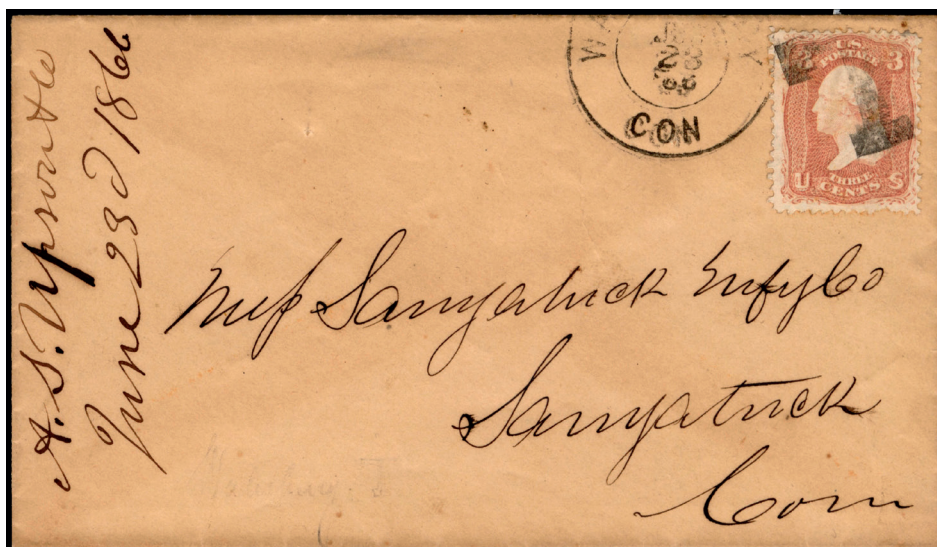 A. S. Upson &c
June 23d 1866
CON
U.S.
POSTAGE
3
THREE
CENTS
U S
Saugatuck Mnfg Co
Saugatuck
Conn